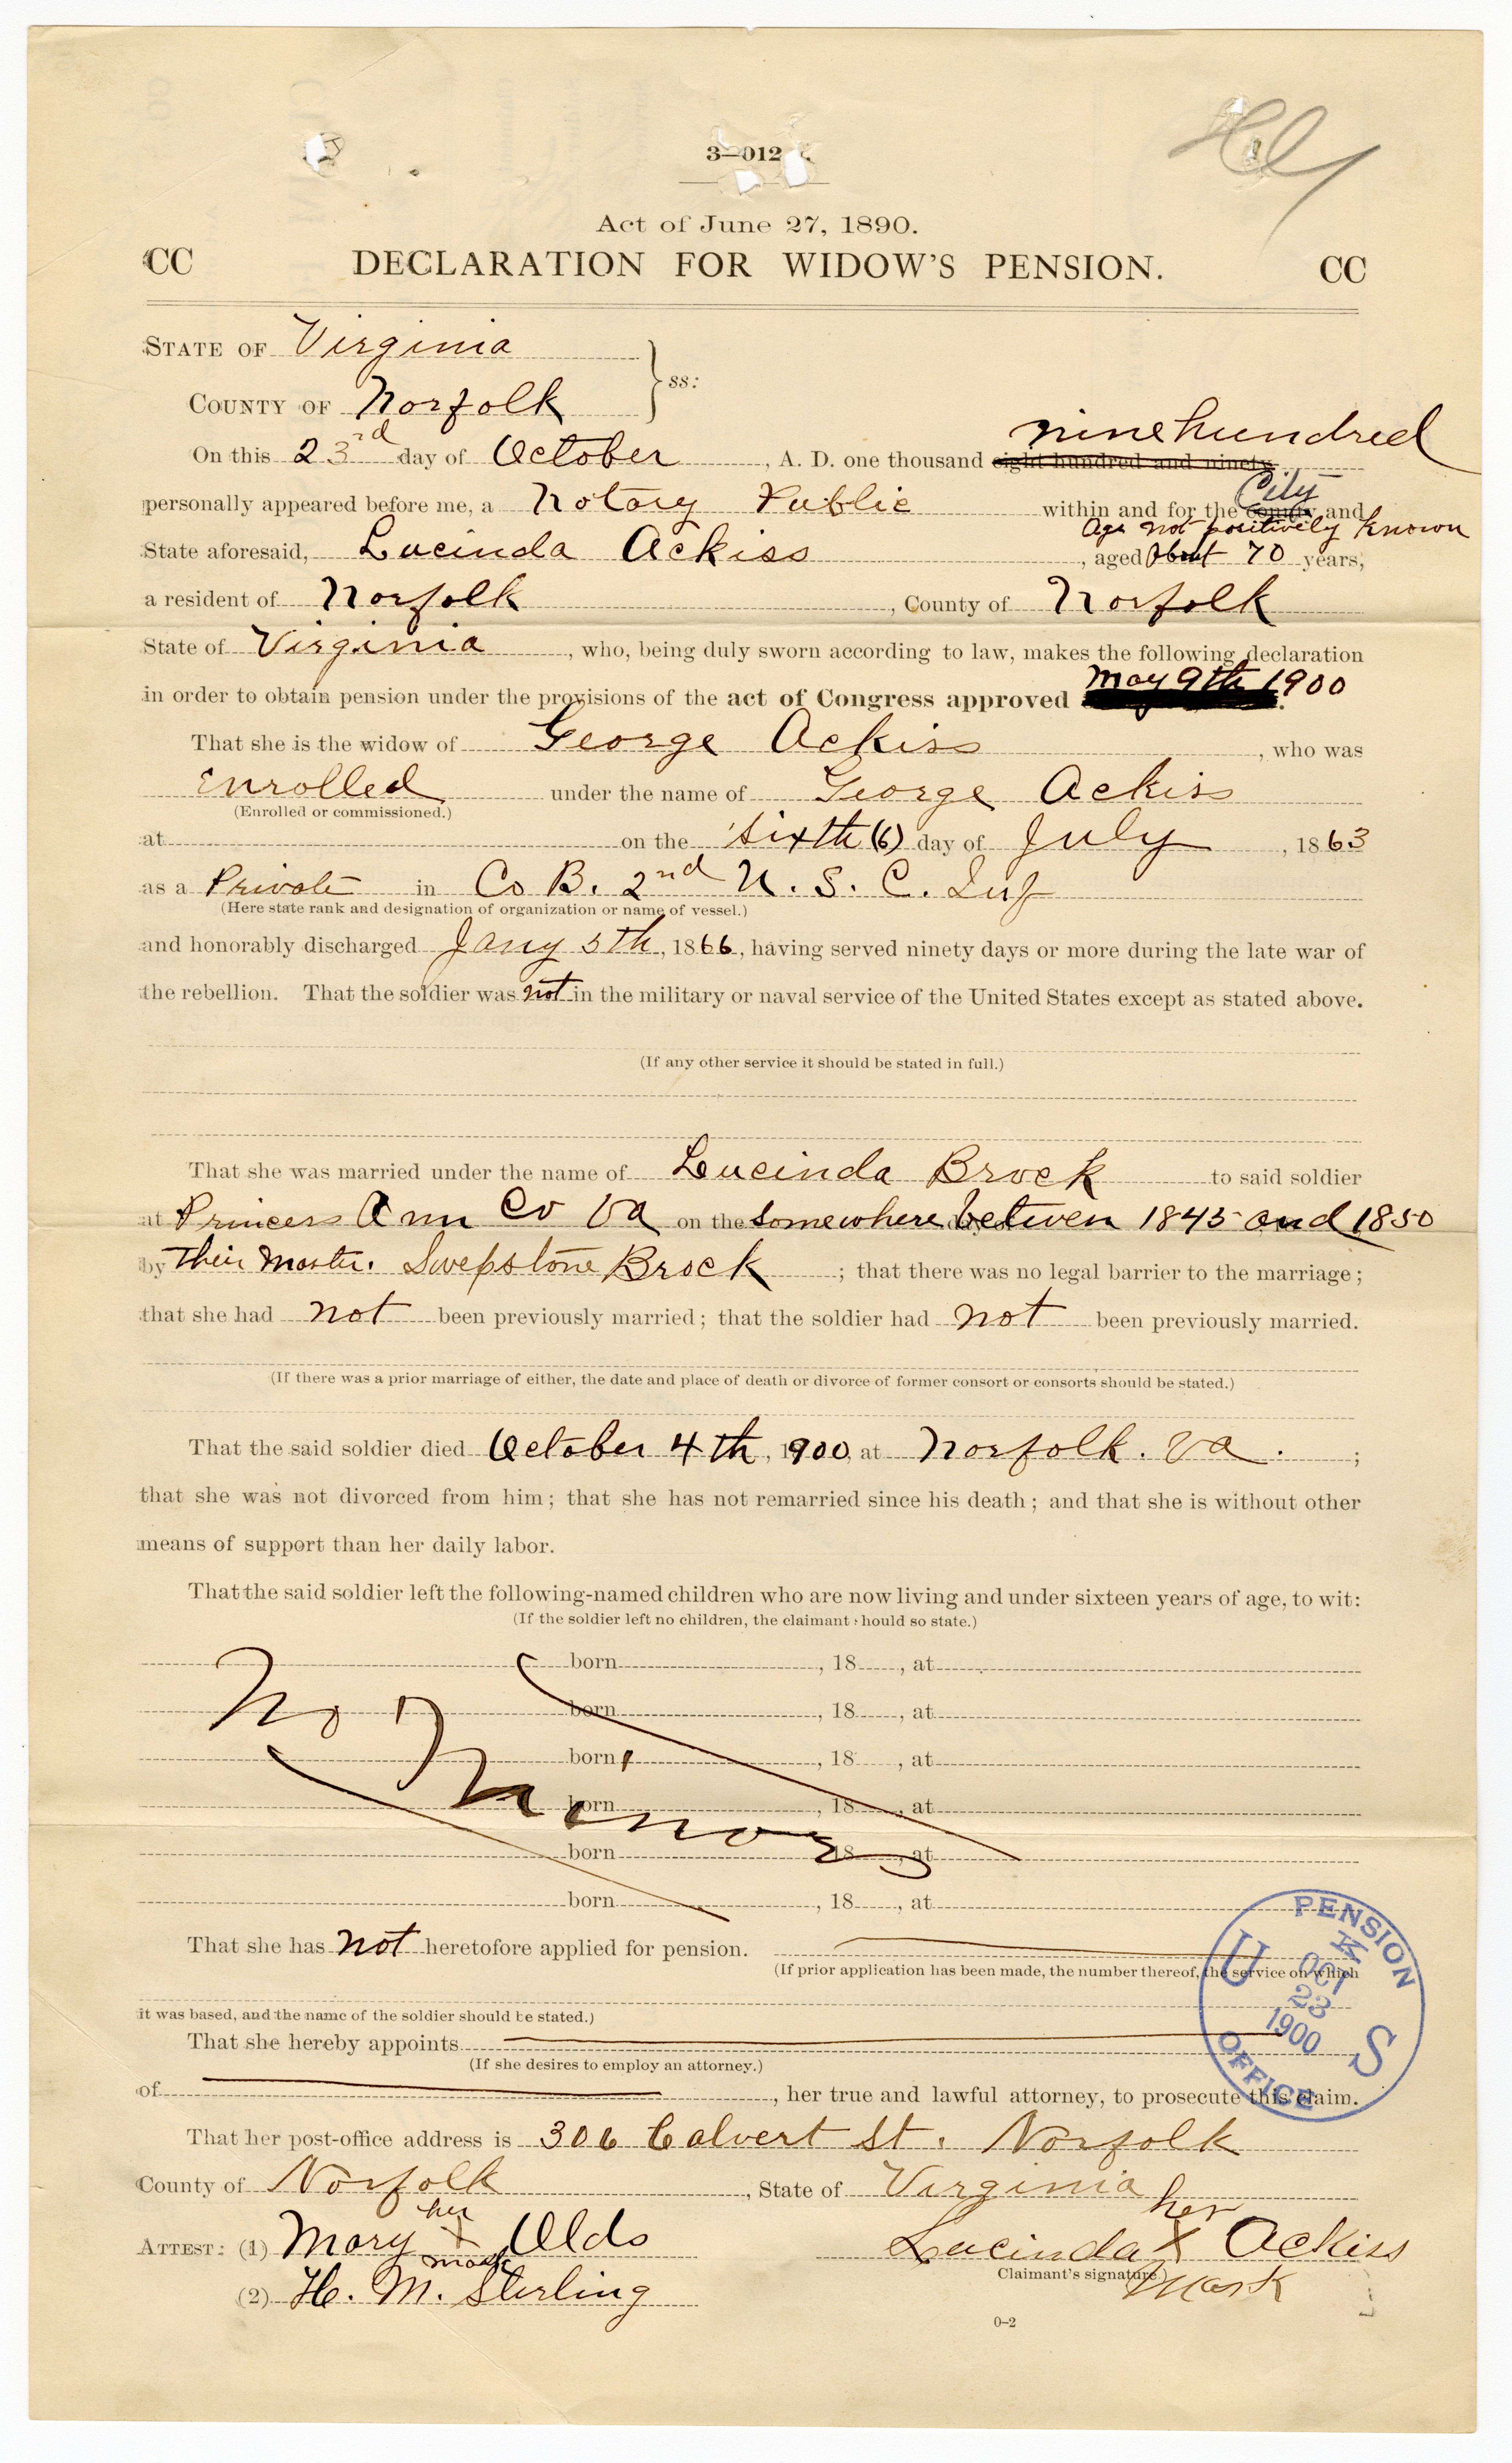 3—012
Hly
Act of June 27, 1890.
CC DECLARATION FOR WIDOW'S PENSION. CC
STATE OF Virginia
ss:
COUNTY OF Norfolk
nine hundred
On this 23rd day of October, A. D. one thousand eight hundred and ninety
City
personally appeared before me, a Notary Public within and for the county and
Age not positively known
State aforesaid, Lucinda Ackiss, aged About 70 years,
a resident of Norfolk, County of Norfolk
State of Virginia, who, being duly sworn according to law, makes the following declaration
in order to obtain pension under the provisions of the act of Congress approved May 9th 1900.
That she is the widow of George Ackiss, who was
Enrolled under the name of George Ackiss
(Enrolled or commissioned.)
at on the Sixth (6) day of July, 1863
as a Private in Co B. 2nd U. S. C. Inf
(Here state rank and designation of organization or name of vessel.)
and honorably discharged Jany 5th, 1866, having served ninety days or more during the late war of
the rebellion. That the soldier was not in the military or naval service of the United States except as stated above.
(If any other service it should be stated in full.)
That she was married under the name of Lucinda Brock to said soldier
at Princess Ann Co Va on the Somewhere between 1845 and 1850
by Their Master. Swepstone Brock; that there was no legal barrier to the marriage;
that she had not been previously married; that the soldier had not been previously married.
(If there was a prior marriage of either, the date and place of death or divorce of former consort or consorts should be stated.)
That the said soldier died October 4th, 1900, at Norfolk. Va.;
that she was not divorced from him; that she has not remarried since his death; and that she is without other
means of support than her daily labor.
That the said soldier left the following-named children who are now living and under sixteen years of age, to wit:
(If the soldier left no children, the claimant should so state.)
born, 18, at
born, 18, at
No
born, 18, at
Minors
born, 18, at
born, 18, at
born, 18, at
That she has not heretofore applied for pension.
(If prior application has been made, the number thereof, the service on which
it was based, and the name of the soldier should be stated.)
PENSION OFFICE
U S
OCT
23
1900
That she hereby appoints
(If she desires to employ an attorney.)
of, her true and lawful attorney, to prosecute this claim.
That her post-office address is 306 Calvert St. Norfolk
County of Norfolk, State of Virginia
her her
ATTEST: (1) Mary X Olds Lucinda X Ackiss
mark Claimant's signature) Mark
(2) H. M. Sterling
0-2